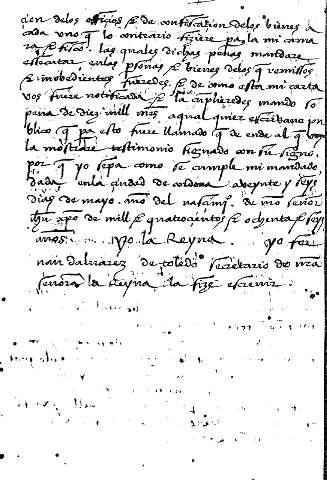 cion delos officios & de confiscacion delos bienes a
cada uno q lo contrario fiziere pa la mi cama
ra & fisco. las quales dichas penas mandare
esecutar enlas psonas & bienes delos q remissos
& inobedientes fueredes & de como esta mi carta
vos fuere notificada & la cunplieredes mando so
pena de diez mill mrs aqual quier escrivano pu
blico q pa esto fuere llamado q de ende al q vos
la mostrare testimonio signado con su signo.
por q yo sepa como se cumple mi mandado
dada enla ciudad de cordova a veynte y seys
dias de mayo. año del nascimº. de nro señor
ihu xpo de mill & quatrocientos & ochenta & seys
años. yo la Reyna. yo fer
nan dalvarez de toledo secretario de nra
señora la Reyna la fize escrevir.